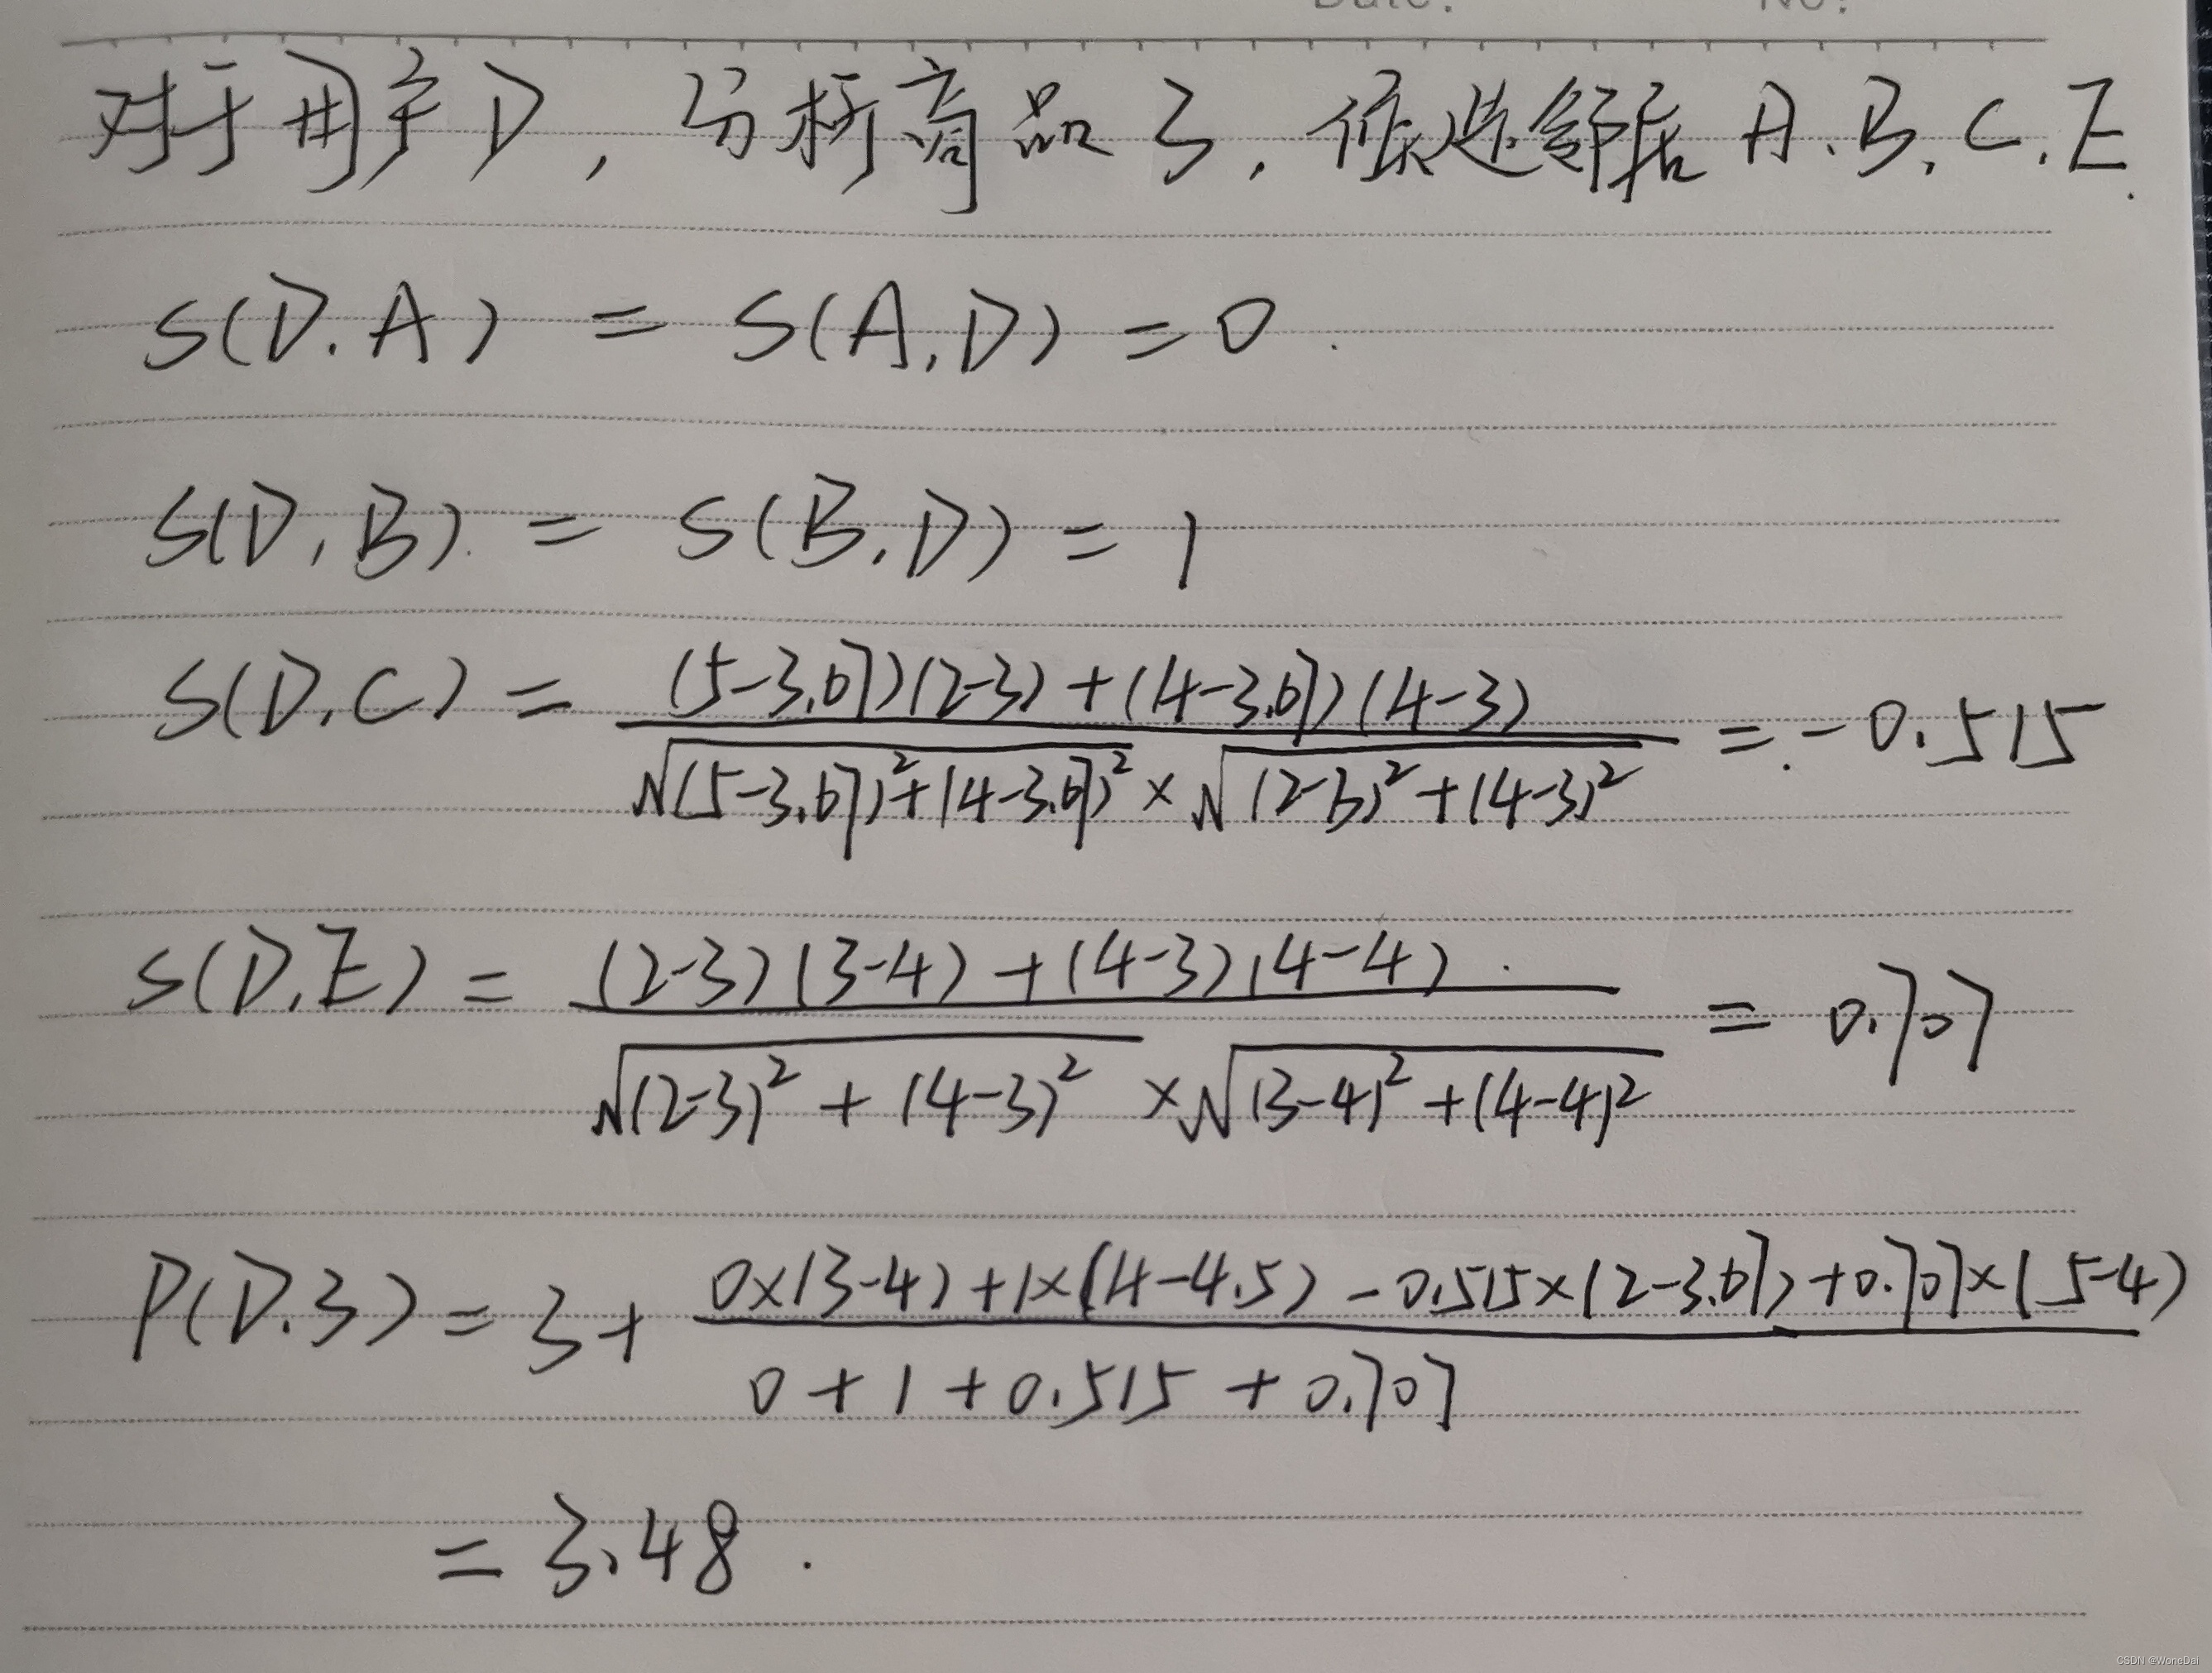 Date: No:
对于用户D，分析商品3，候选邻居A.B.C.E.
S(D.A) = S(A,D) = 0.
S(D,B) = S(B,D) = 1
S(D,C) = \frac{(5-3.67)(2-3)+(4-3.67)(4-3)}{\sqrt{(5-3.67)^2+(4-3.67)^2} × \sqrt{(2-3)^2+(4-3)^2}} = -0.515
S(D,E) = \frac{(2-3)(3-4)+(4-3)(4-4)}{\sqrt{(2-3)^2+(4-3)^2} × \sqrt{(3-4)^2+(4-4)^2}} = 0.707
P(D.3) = 3 + \frac{0×(3-4)+1×(4-4.5)-0.515×(2-3.67)+0.707×(5-4)}{0+1+0.515+0.707}
= 3.48.
CSDN @WoneDal